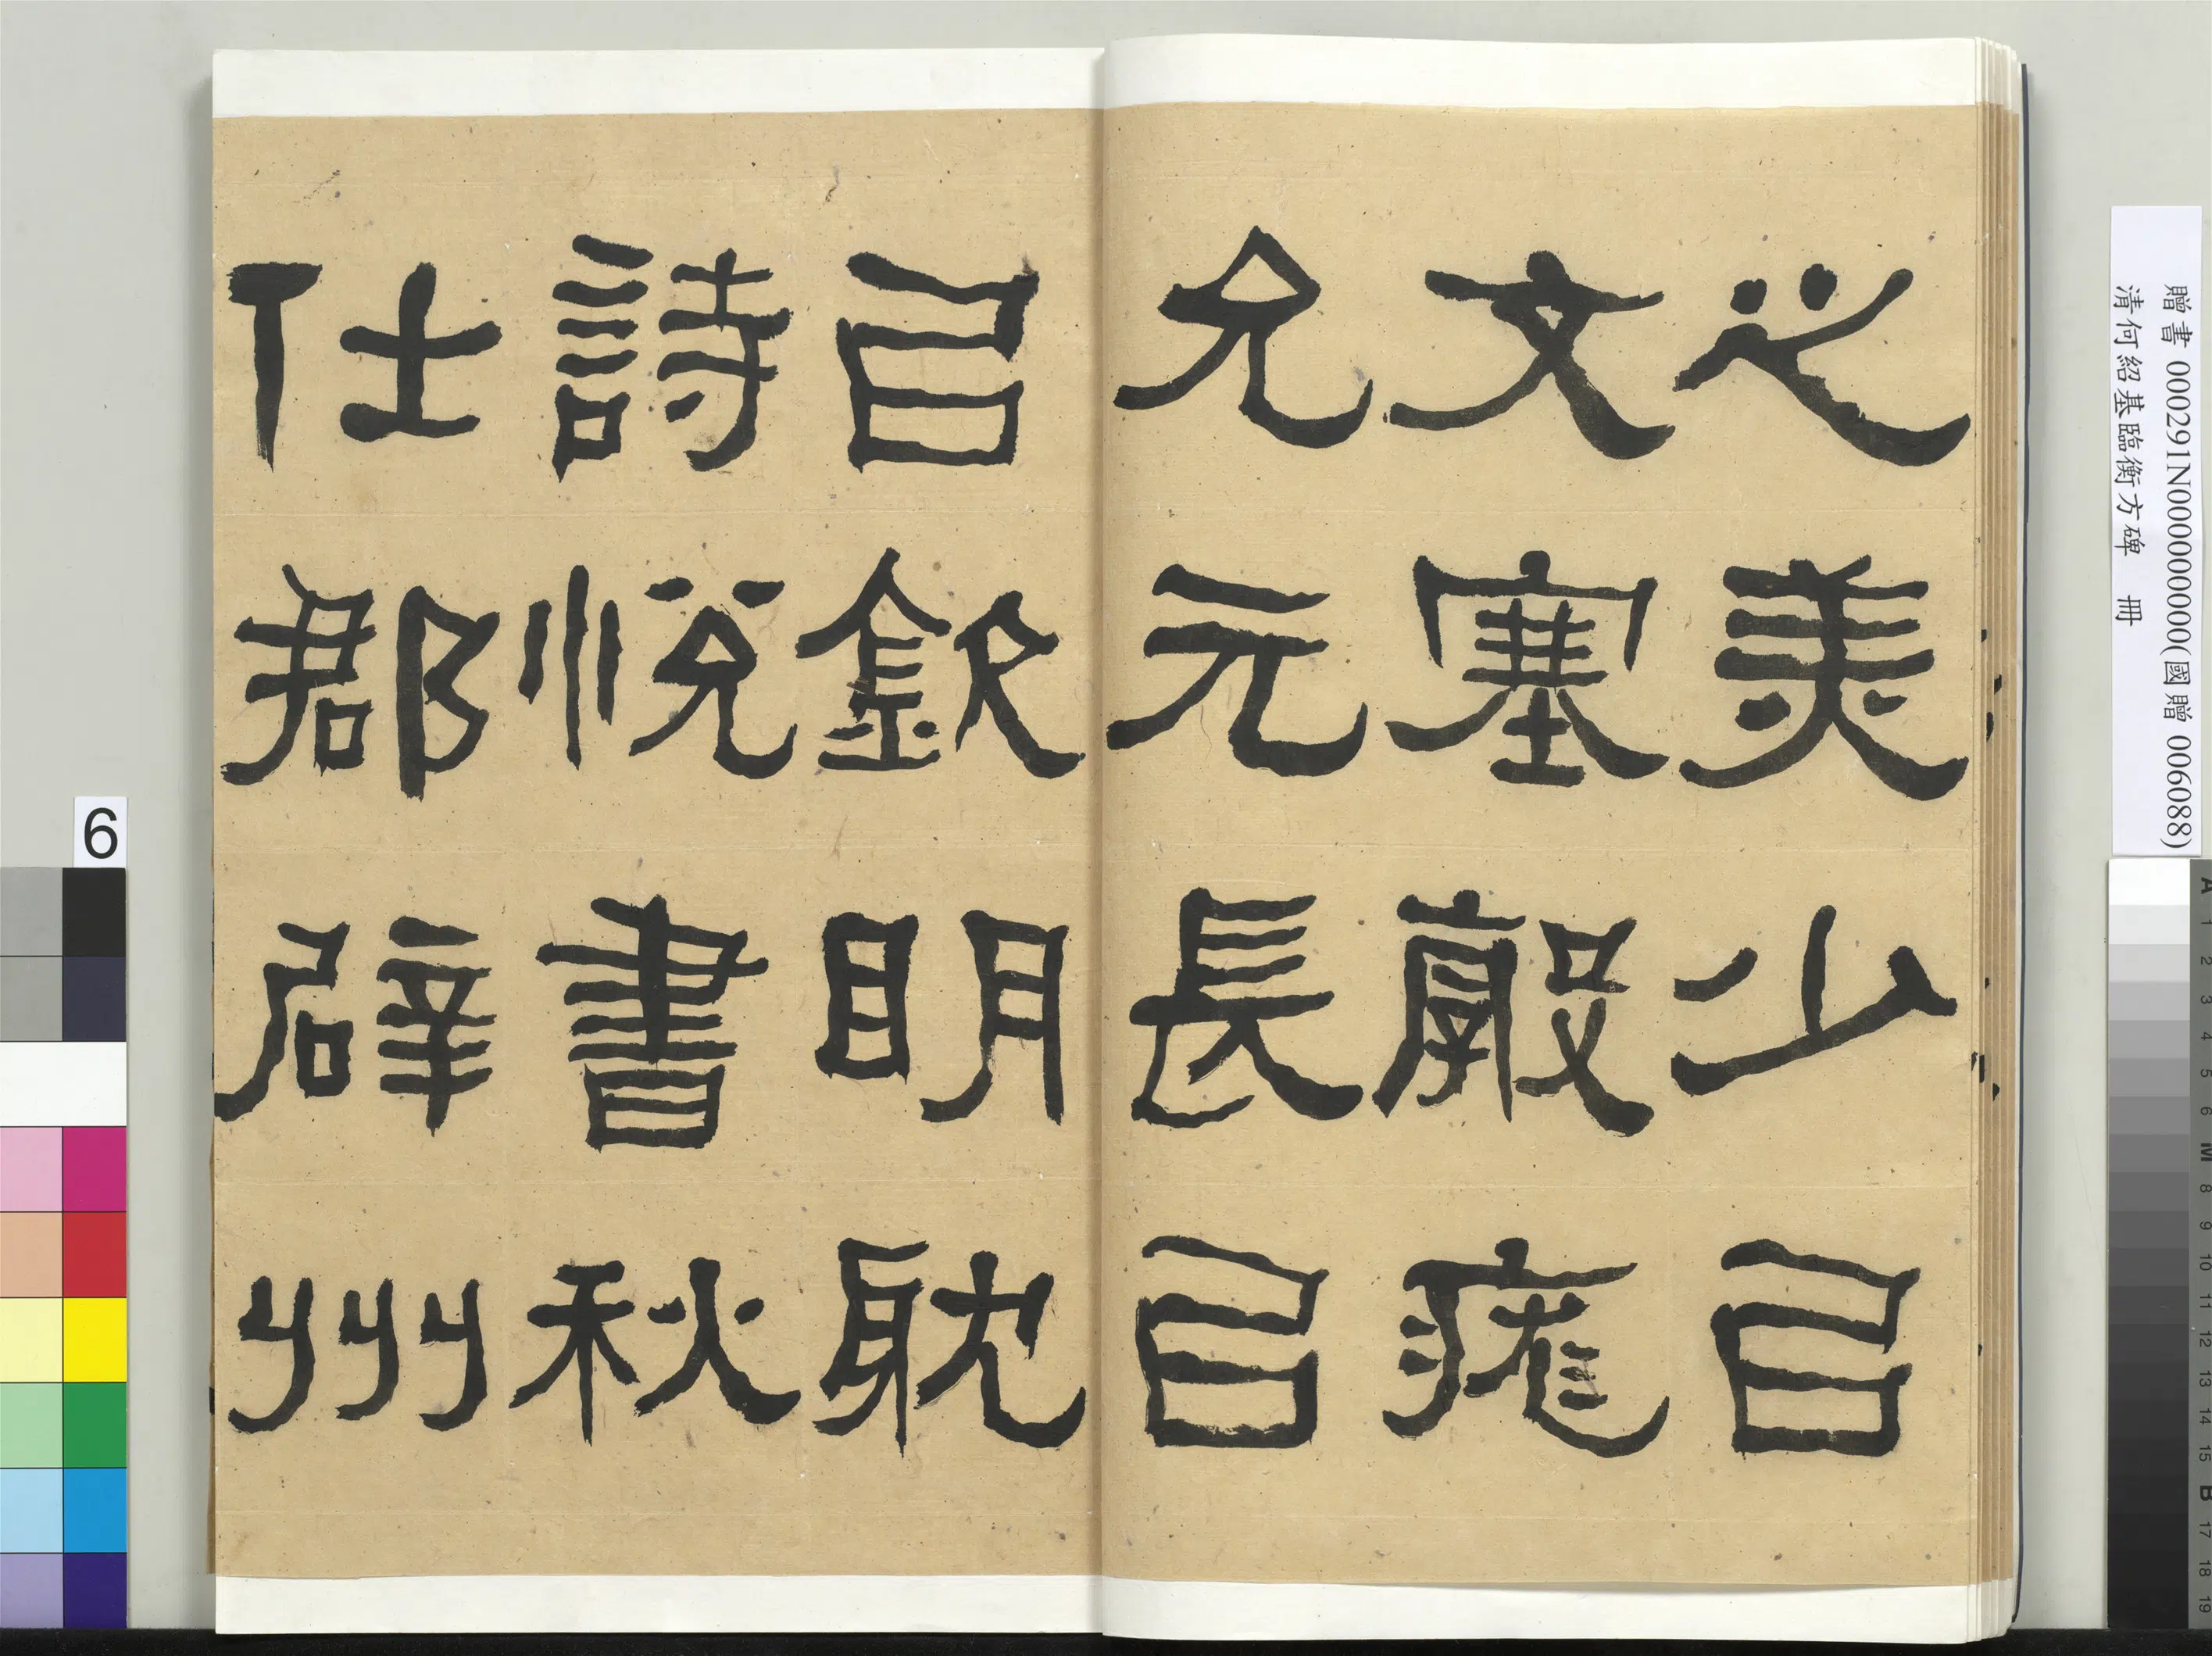 之美少㠯
文塞敦庬
允元長㠯
㠯欽明耽
詩悅書秋
仕郡辟州
贈書 000291N000000000(國贈 006088)
清何紹基臨衡方碑 冊
6
A 1 2 3 4 5 6 M 8 9 10 11 12 13 14 15 B 17 18 19